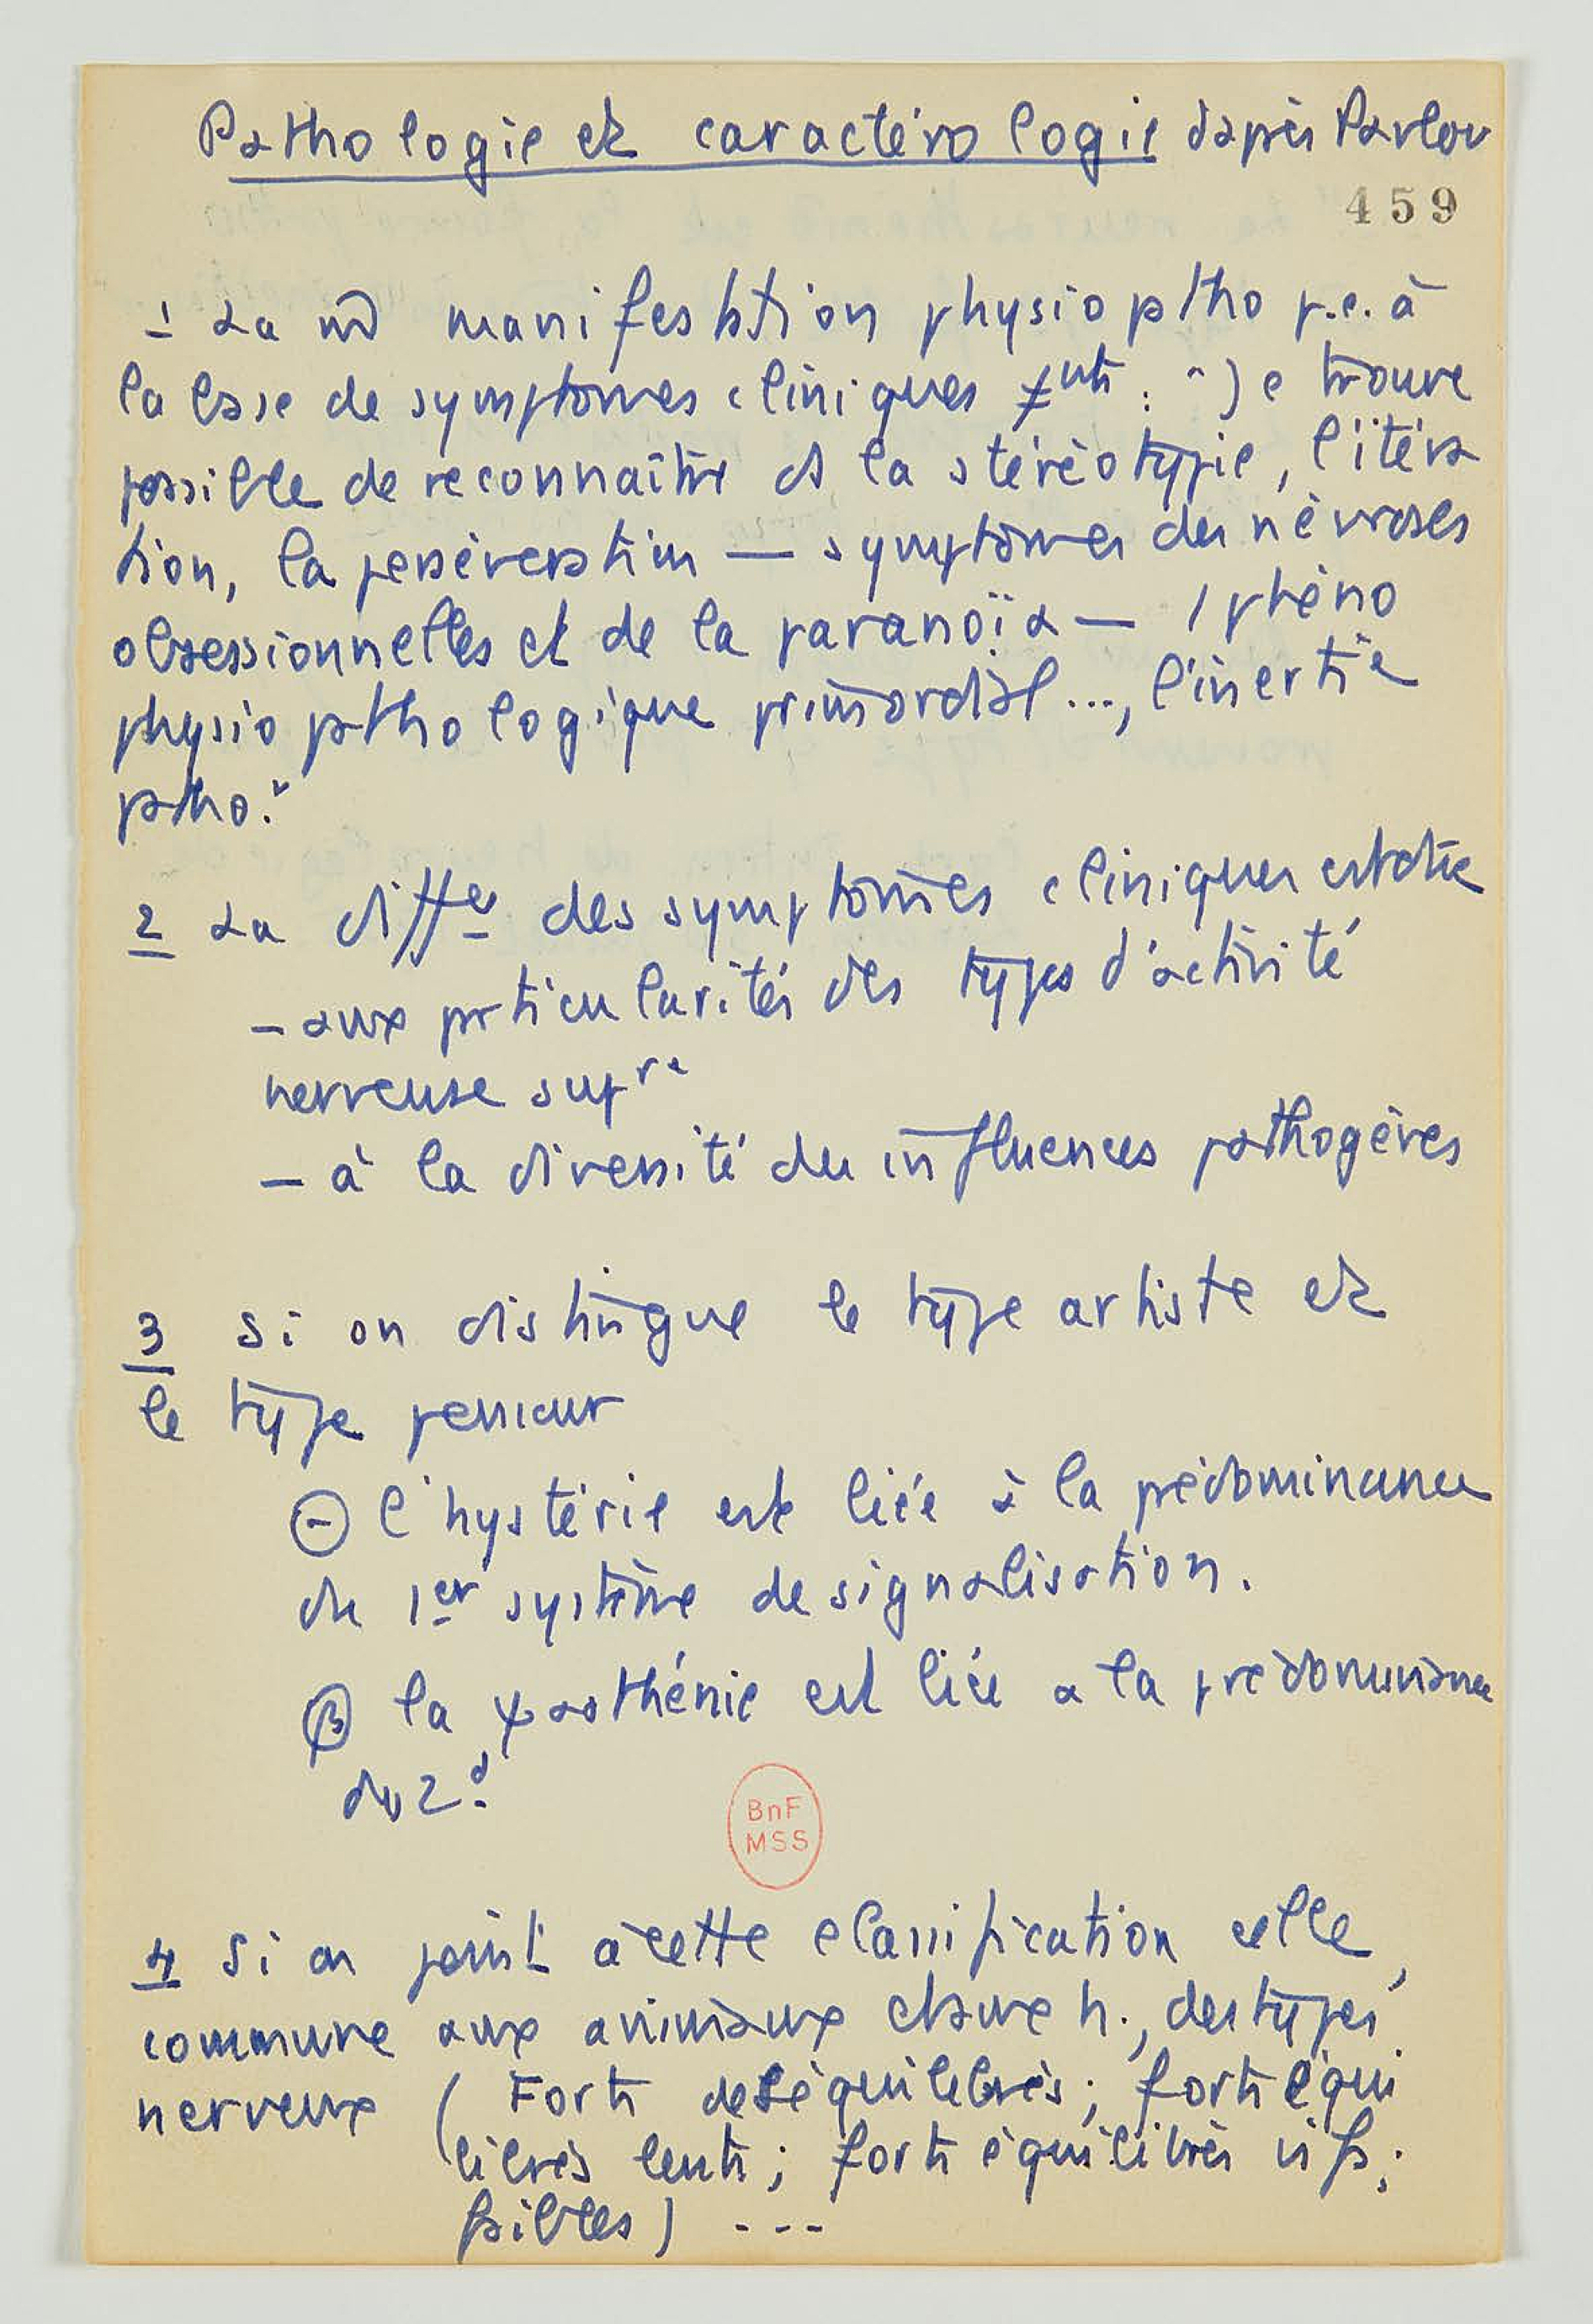 Pathologie et caractérologie d'après Pavlov
459
1 La m̂ manifestation physiopatho p.e. à
la base de symptômes cliniques ≠nts : "Je trouve
possible de reconnaître ds la stéréotypie, l'itéra
tion, la persévération — symptômes des névroses
obsessionnelles et de la paranoïa — 1 phéno
physiopathologique primordial ..., l'inertie
patho."
2 La diffce des symptômes cliniques est due
- aux particularités des types d'activité
nerveuse supre
- à la diversité des influences pathogènes
3 Si on distingue le type artiste et
le type penseur
α l'hystérie est liée à la prédominance
du 1er système de signalisation.
β la ψasthénie est liée a la prédominance
du 2d.
4 Si on joint à cette classification celle,
commune aux animaux et aux h., des types
nerveux (Forts deséquilibrés; forts équi
librés lents; forts équilibrés
faibles) ---
BnF
MSS